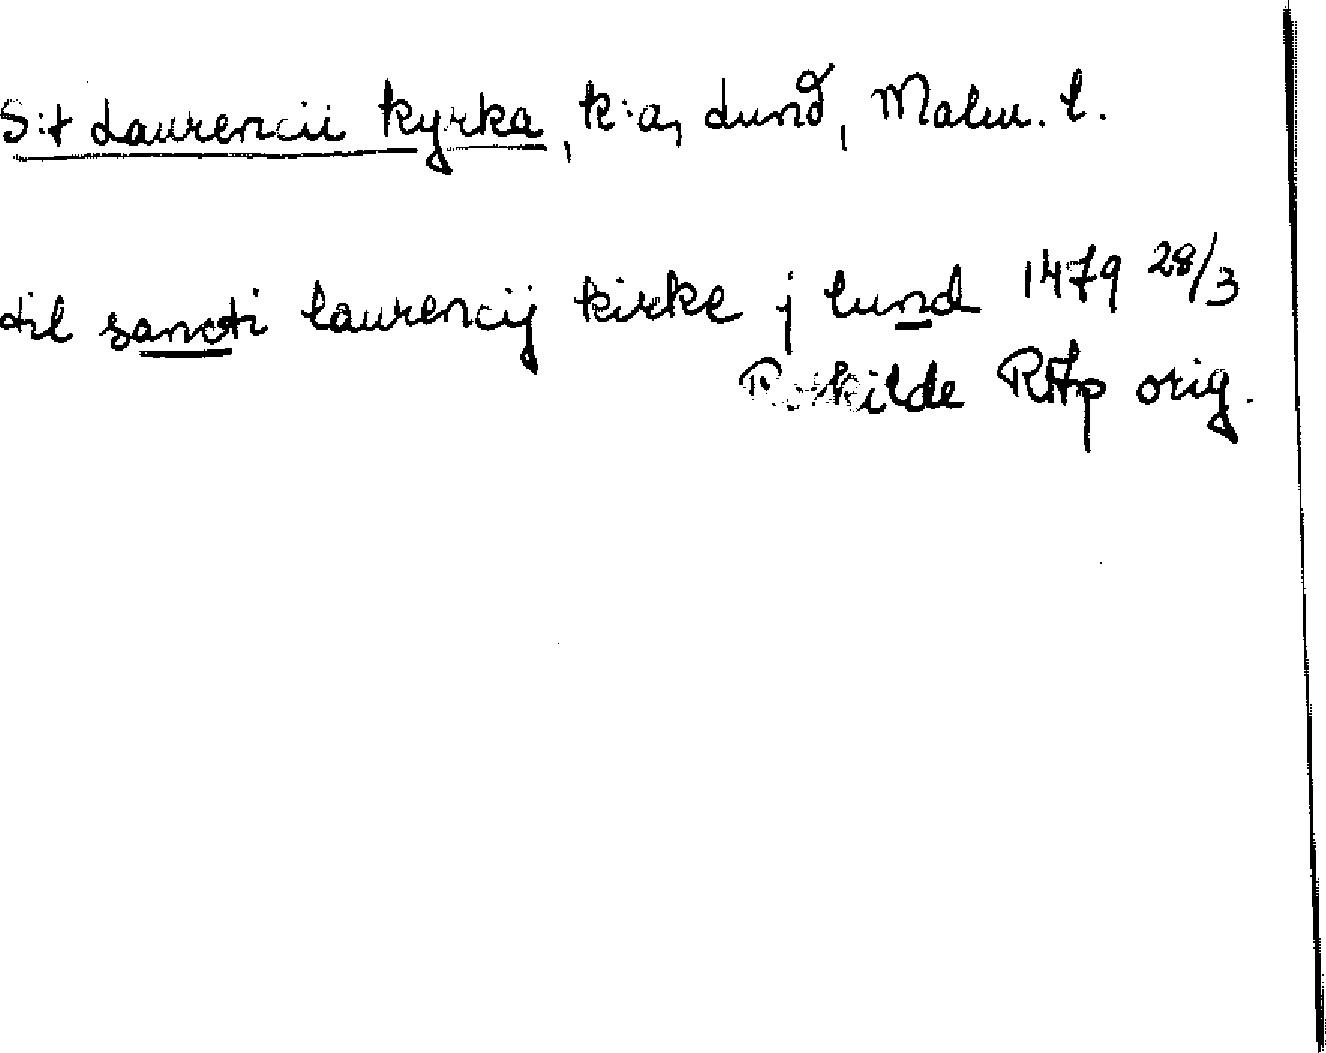 S:t Laurencii kyrka, k:a, Lund, Malm. l.
til sancti laurencij kirke j lund 1479 28/3
Roskilde RAp orig.